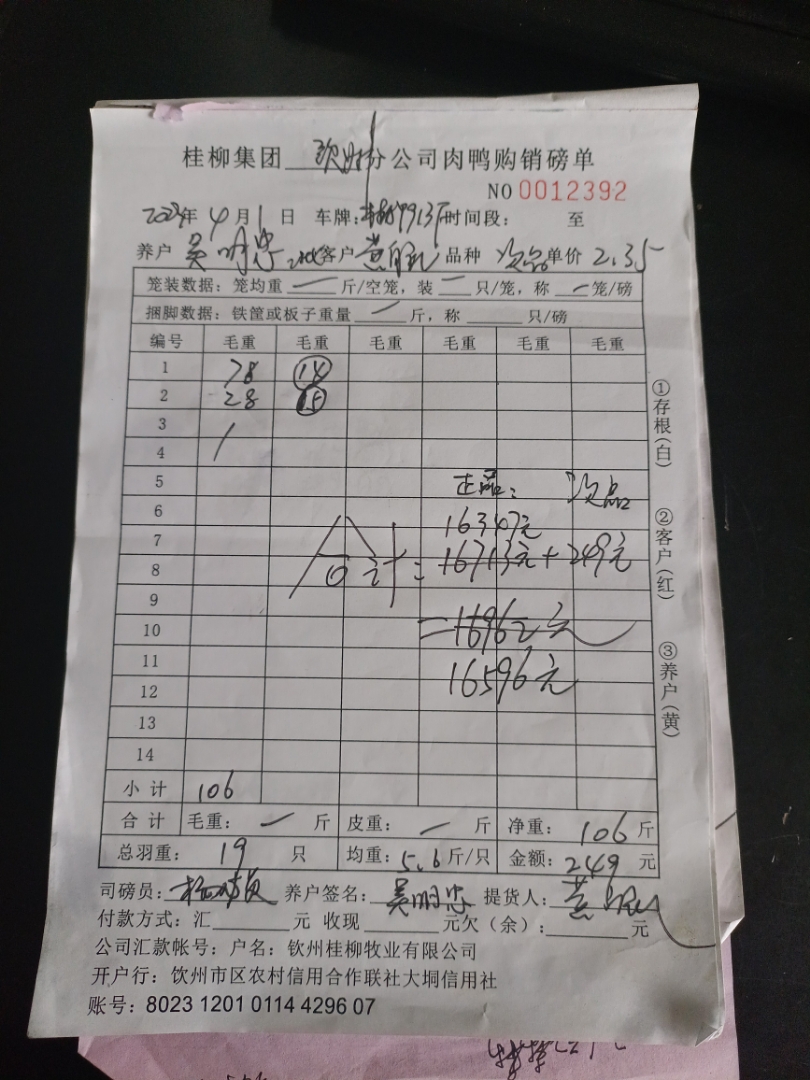 桂柳集团 分公司肉鸭购销磅单
NO 0012392
年4月1日 车牌: 时间段: 至
养户 吴明忠 客户 品种 次品 单价 2.35
笼装数据:笼均重 一 斤/空笼,装 一 只/笼,称 一 笼/磅
捆脚数据:铁筐或板子重量 一 斤,称 只/磅
编号 毛重 毛重 毛重 毛重 毛重 毛重
1 78 14
2 28 15
3
4
5 正品: 次品
6 16347元
7
8 合计=16713元+249元
9
10 =16962元
11 16596元
12
13
14
小计 106
合计 毛重: 一 斤 皮重: 一 斤 净重: 106 斤
总羽重: 19 只 均重: 5.6 斤/只 金额: 249 元
司磅员: 养户签名: 吴明忠 提货人:
付款方式:汇 元 收现 元欠(余): 元
公司汇款帐号:户名:钦州桂柳牧业有限公司
开户行:钦州市区农村信用合作联社大垌信用社
账号:8023 1201 0114 4296 07
①存根(白)
②客户(红)
③养户(黄)